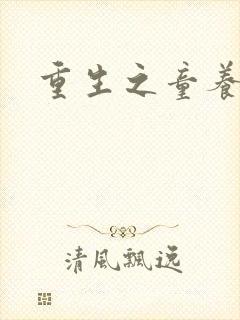 重生之童養
清風飄逸